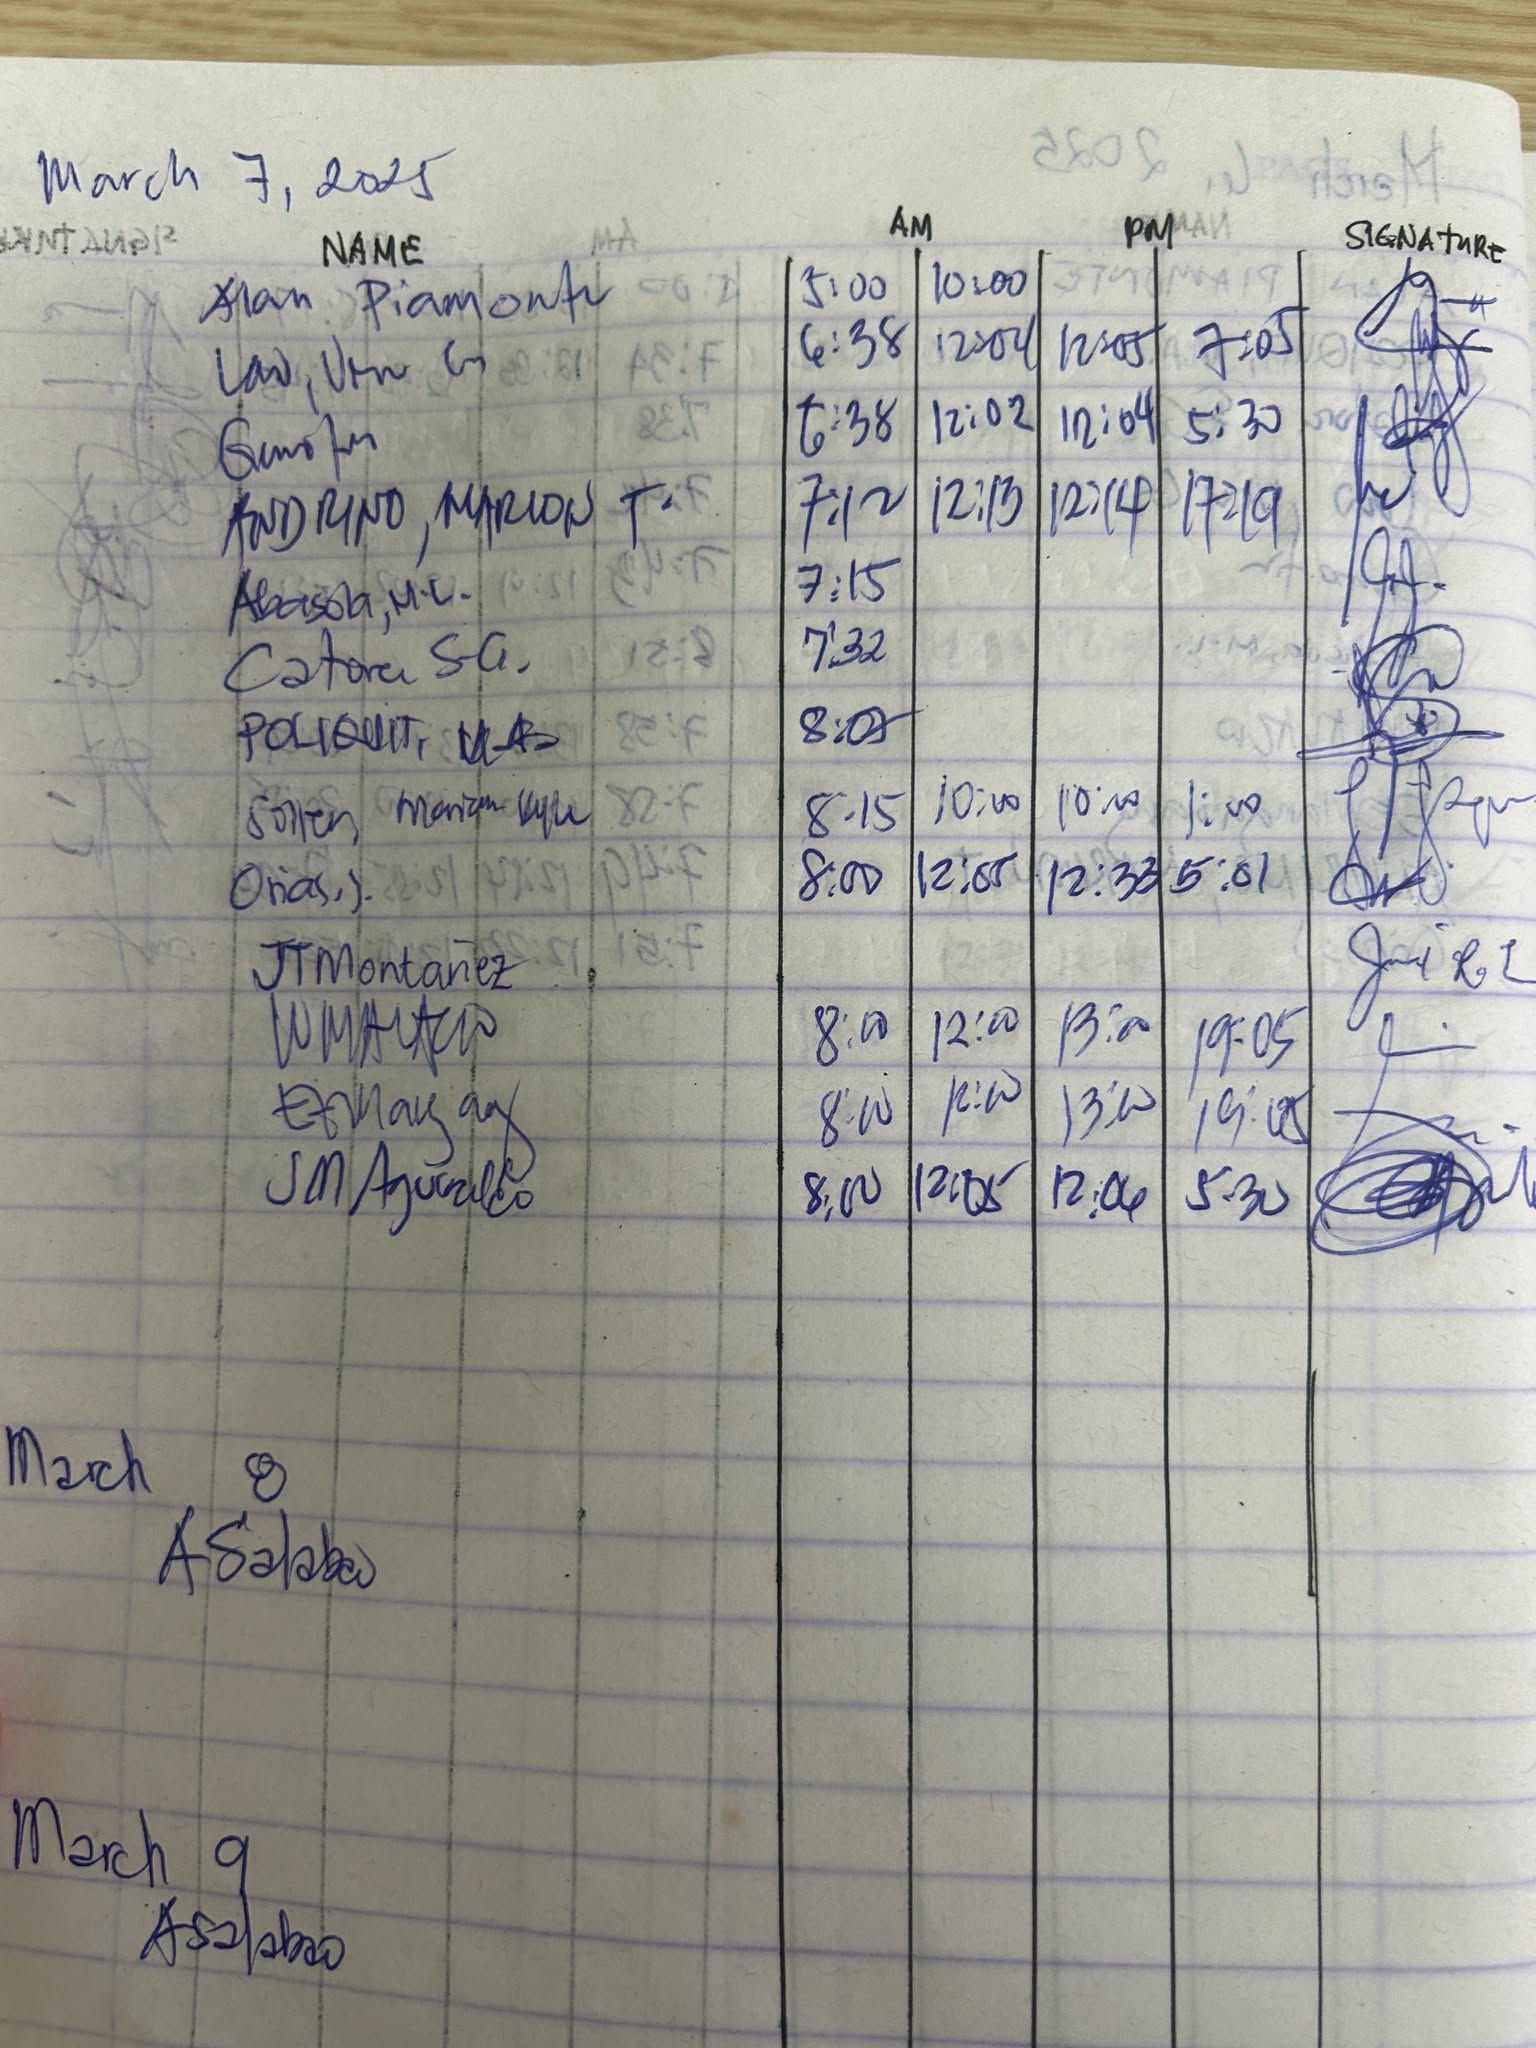 March 7, 2025
NAME AM PM SIGNATURE
Alan Piamonte 5:00 10:00
Lao, G 6:38 12:04 12:05 7:05
6:38 12:02 12:04 5:30
ANDRINO, MARION T. 7:12 12:13 12:14 17:19
Abasola, M.L. 7:15
Catora S.G. 7:32
POLIQUIT, M.A. 8:05
Mariam Kyle 8:15 10:00 10:00 1:00
Orias, J. 8:00 12:05 12:33 5:01
JTMontañez
WMALAKIO 8:00 12:00 13:00 19:05
8:00 12:00 13:00 19:05
JM 8:00 12:05 12:06 5:30
March 8
ASalabao
March 9
ASalabao